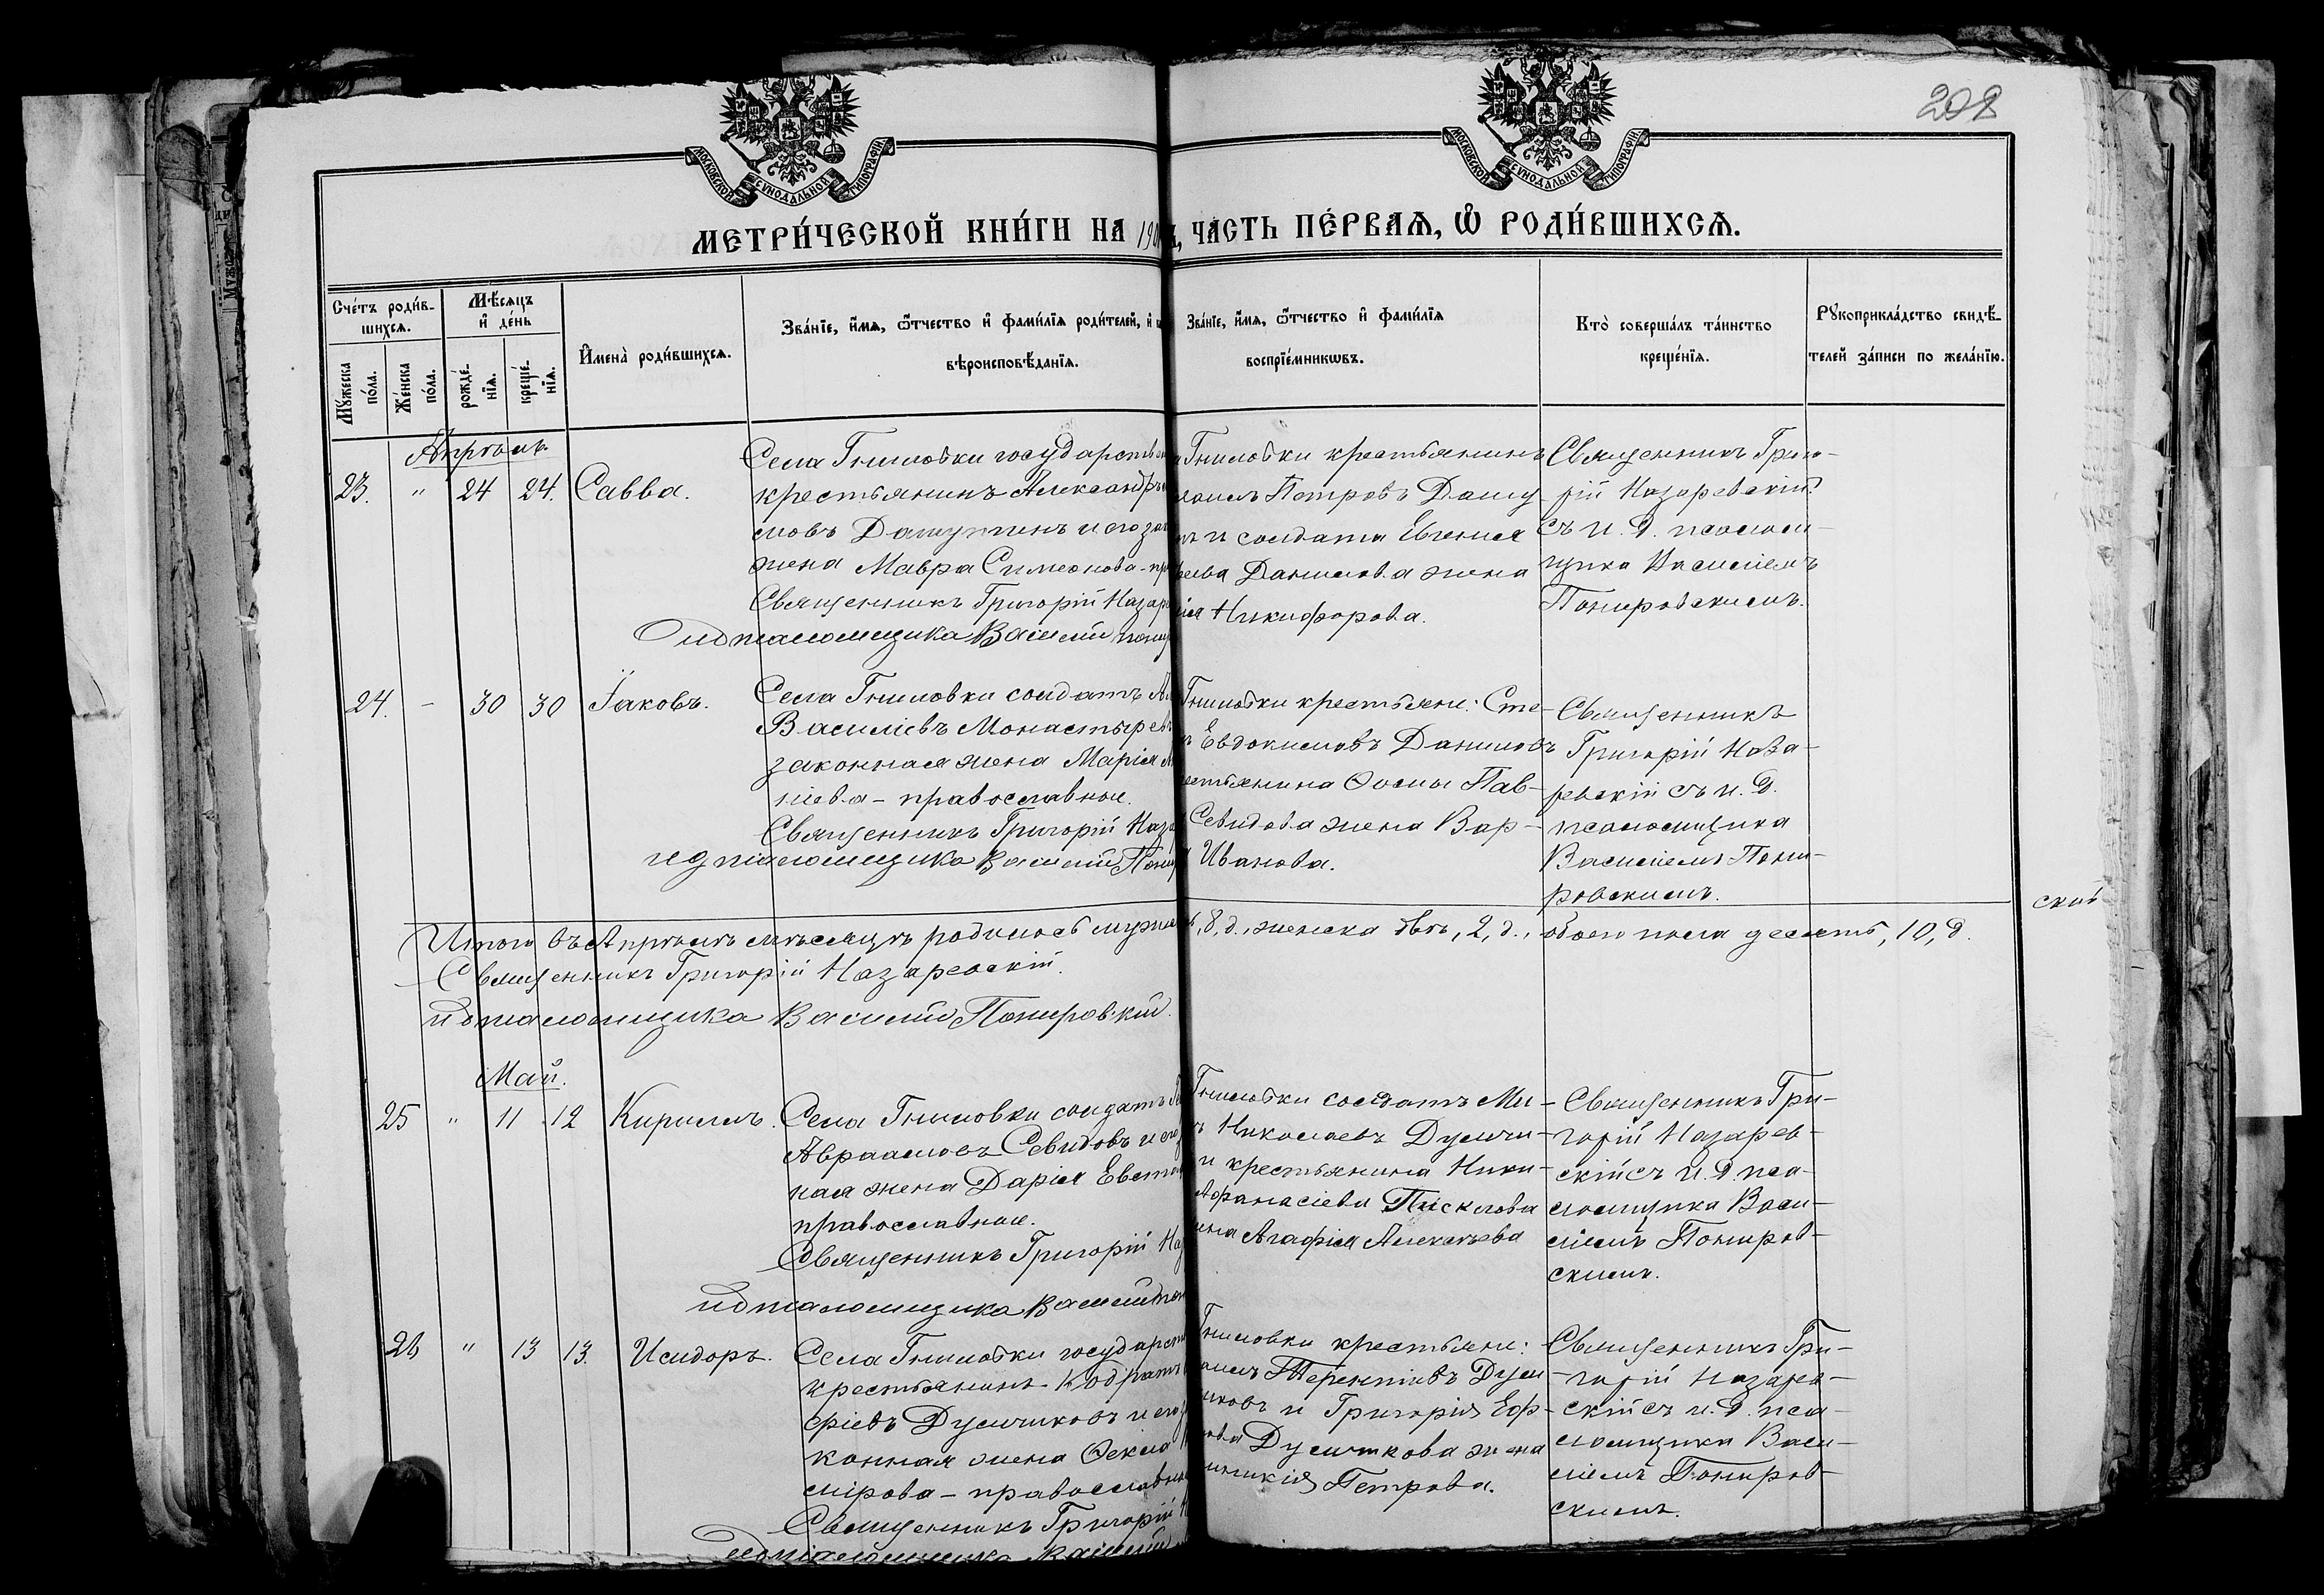 208
МОСКОВСКОЙ СУНОДАЛЬНОЙ ТИПОГРАФІИ
МОСКОВСКОЙ СУНОДАЛЬНОЙ ТИПОГРАФІИ
МЕТРИ́ЧЕСКОЙ КНИ́ГИ НА 190 ЧА́СТЬ ПЕ́РВАѦ, Ѽ РОДИ́ВШИХСѦ.
Сче́тъ роди́в-
шихсѧ.
Мꙋ́жеска
по́ла.
Же́нска
по́ла.
Мѣ́сяцъ
и҆ де́нь
рожде́-
нїѧ.
креще́-
нїѧ.
И҆мена̀ роди́вшихсѧ.
Зва́нїе, и҆́мѧ, ѻ҆́тчество и҆ фами́лїѧ роди́телей, и҆
вѣроисповѣ́данїѧ.
Зва́нїе, и҆́мѧ, ѻ҆́тчество и҆ фами́лїѧ
воспрїе́мникѡвъ.
Кто̀ соверша́лъ та́инство
креще́нїѧ.
Рꙋкоприкла́дство свидѣ́-
телей за́писи по жела́нїю.
Апрѣль
23. " 24 24. Савва.
Села Гниловки государствен
крестьянинъ Александръ
мовъ Дашутинъ и его зак
жена Мавра Симеонова - пр
Священникъ Григорій Назаре
Василій
Гниловки крестьянинъ
Петровъ Дашу
и солдата Евгения
Данилова жена
Никифорова.
Священникъ Григо-
рій Назаревскій
съ и. д. псалом-
щика Василіемъ
Понировскимъ.
24. - 30 30 Іаковъ.
Села Гниловки солдатъ
Василіевъ Монастырев
законная жена Марія
ніева - православные.
Священникъ Григорій Наза
и д псаломщика Василий Пони
Гниловки крестьяне: Сте-
Евдокимовъ Даниловъ
Ѳомы Пав-
Севидова жена Вар-
Иванова.
Священникъ
Григорій Наза-
ревскій съ и. д.
псаломщика
Василіемъ Пони-
ровскимъ.
скій
Итого въ Апрѣлѣ мѣсяцѣ родилось мужеск
, 8, д., женска двѣ, 2, д., обоего пола десять, 10, д.
Священникъ Григорій Назаревскій.
и д псаломщика Василий Понировский.
Май.
25 " 11 12 Кириллъ.
Села Гниловки солдатъ
Авраамовъ Севидовъ и его
ная жена Дарія Евста
православные.
Священникъ Григорій Наз
и д псаломщика Василий Пон
Гниловки солдатъ Ми-
Николаевъ Думчи-
и крестьянина Ники-
Афанасіева Пискловa
Агафія Алексѣева
Священникъ Гри-
горій Назарев-
скій съ и. д. пса-
ломщика Васи-
ліемъ Пониров-
скимъ.
26 " 13 13. Исидоръ.
Села Гниловки государст
крестьянинъ Кодратъ
фіевъ Думчиковъ и его
конная жена Ѳекла
мірова - православные
Священникъ Григорій
и д псаломщика Василий
Гниловки крестьяне:
Терентіевъ Дум
иковъ и Григорія Еф-
Думчикова жена
Петрова.
Священникъ Гри-
горій Назарев-
скій съ и. д. пса-
ломщика Васи-
ліемъ Пониров-
скимъ.